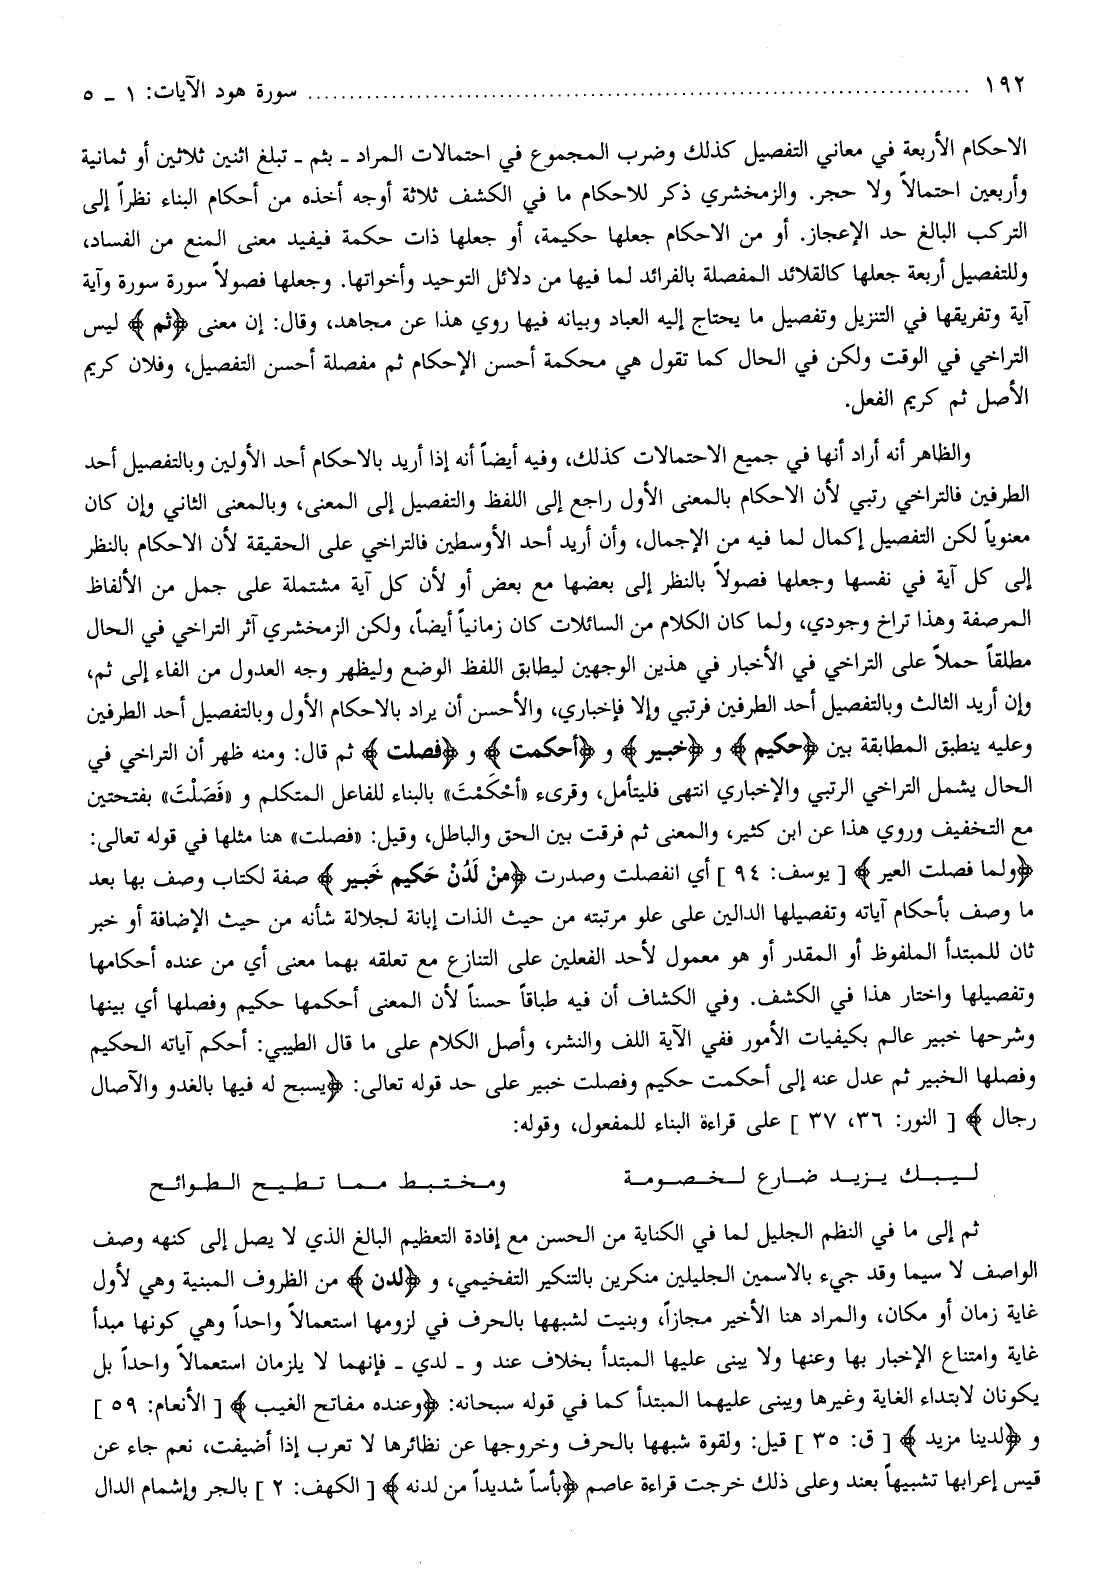 ١٩٢ ........................................ سورة هود الآيات: ١ ـ ٥
الاحكام الأربعة في معاني التفصيل كذلك وضرب المجموع في احتمالات المراد ـ بثم ـ تبلغ اثنين ثلاثين أو ثمانية
وأربعين احتمالاً ولا حجر. والزمخشري ذكر للاحكام ما في الكشف ثلاثة أوجه أخذه من أحكام البناء نظراً إلى
التركب البالغ حد الإعجاز. أو من الاحكام جعلها حكيمة، أو جعلها ذات حكمة فيفيد معنى المنع من الفساد،
وللتفصيل أربعة جعلها كالقلائد المفصلة بالفرائد لما فيها من دلائل التوحيد وأخواتها. وجعلها فصولاً سورة سورة وآية
آية وتفريقها في التنزيل وتفصيل ما يحتاج إليه العباد وبيانه فيها روي هذا عن مجاهد، وقال: إن معنى ﴿ثم﴾ ليس
التراخي في الوقت ولكن في الحال كما تقول هي محكمة أحسن الإحكام ثم مفصلة أحسن التفصيل، وفلان كريم
الأصل ثم كريم الفعل.
والظاهر أنه أراد أنها في جميع الاحتمالات كذلك، وفيه أيضاً أنه إذا أريد بالاحكام أحد الأولين وبالتفصيل أحد
الطرفين فالتراخي رتبي لأن الاحكام بالمعنى الأول راجع إلى اللفظ والتفصيل إلى المعنى، وبالمعنى الثاني وإن كان
معنوياً لكن التفصيل إكمال لما فيه من الإجمال، وأن أريد أحد الأوسطين فالتراخي على الحقيقة لأن الاحكام بالنظر
إلى كل آية في نفسها وجعلها فصولاً بالنظر إلى بعضها مع بعض أو لأن كل آية مشتملة على جمل من الألفاظ
المرصفة وهذا تراخ وجودي، ولما كان الكلام من السائلات كان زمانياً أيضاً، ولكن الزمخشري آثر التراخي في الحال
مطلقاً حملاً على التراخي في الأخبار في هذين الوجهين ليطابق اللفظ الوضع وليظهر وجه العدول من الفاء إلى ثم،
وإن أريد الثالث وبالتفصيل أحد الطرفين فرتبي وإلا فإخباري، والأحسن أن يراد بالاحكام الأول وبالتفصيل أحد الطرفين
وعليه ينطبق المطابقة بين ﴿حكيم﴾ و ﴿خبير﴾ و ﴿أحكمت﴾ و ﴿فصلت﴾ ثم قال: ومنه ظهر أن التراخي في
الحال يشمل التراخي الرتبي والإخباري انتهى فليتأمل، وقرىء «أحْكَمْتَ» بالبناء للفاعل المتكلم و «فَصَلْتَ» بفتحتين
مع التخفيف وروي هذا عن ابن كثير، والمعنى ثم فرقت بين الحق والباطل، وقيل: «فصلت» هنا مثلها في قوله تعالى:
﴿ولما فصلت العير﴾ [ يوسف: ٩٤ ] أي انفصلت وصدرت ﴿منْ لَدُنْ حَكيم خَبير﴾ صفة لكتاب وصف بها بعد
ما وصف بأحكام آياته وتفصيلها الدالين على علو مرتبته من حيث الذات إبانة لجلالة شأنه من حيث الإضافة أو خبر
ثان للمبتدأ الملفوظ أو المقدر أو هو معمول لأحد الفعلين على التنازع مع تعلقه بهما معنى أي من عنده أحكامها
وتفصيلها واختار هذا في الكشف. وفي الكشاف أن فيه طباقاً حسناً لأن المعنى أحكمها حكيم وفصلها أي بينها
وشرحها خبير عالم بكيفيات الأمور ففي الآية اللف والنشر، وأصل الكلام على ما قال الطيبي: أحكم آياته الحكيم
وفصلها الخبير ثم عدل عنه إلى أحكمت حكيم وفصلت خبير على حد قوله تعالى: ﴿يسبح له فيها بالغدو والآصال
رجال﴾ [ النور: ٣٦، ٣٧ ] على قراءة البناء للمفعول، وقوله:
ليبك يزيد ضارع لخصومة ومختبط مما تطيح الطوائح
ثم إلى ما في النظم الجليل لما في الكناية من الحسن مع إفادة التعظيم البالغ الذي لا يصل إلى كنهه وصف
الواصف لا سيما وقد جيء بالاسمين الجليلين منكرين بالتنكير التفخيمي، و ﴿لدن﴾ من الظروف المبنية وهي لأول
غاية زمان أو مكان، والمراد هنا الأخير مجازاً، وبنيت لشبهها بالحرف في لزومها استعمالاً واحداً وهي كونها مبدأ
غاية وامتناع الإخبار بها وعنها ولا يبنى عليها المبتدأ بخلاف عند و ـ لدي ـ فإنهما لا يلزمان استعمالاً واحداً بل
يكونان لابتداء الغاية وغيرها ويبنى عليهما المبتدأ كما في قوله سبحانه: ﴿وعنده مفاتح الغيب﴾ [ الأنعام: ٥٩ ]
و ﴿لدينا مزيد﴾ [ ق: ٣٥ ] قيل: ولقوة شبهها بالحرف وخروجها عن نظائرها لا تعرب إذا أضيفت، نعم جاء عن
قيس إعرابها تشبيهاً بعند وعلى ذلك خرجت قراءة عاصم ﴿بأساً شديداً من لدنه﴾ [ الكهف: ٢ ] بالجر وإشمام الدال